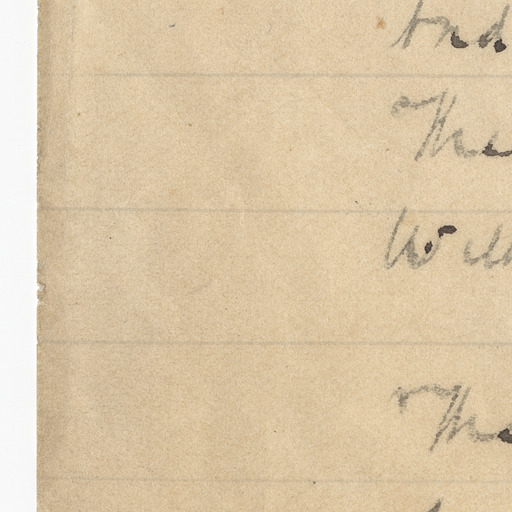 And
The
Will
The